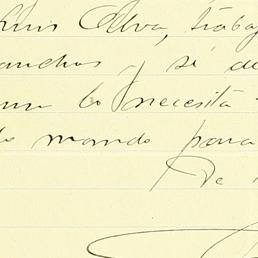 Luis Alva, trabaj
anchos y si de
lo necesita
lo mando para
De